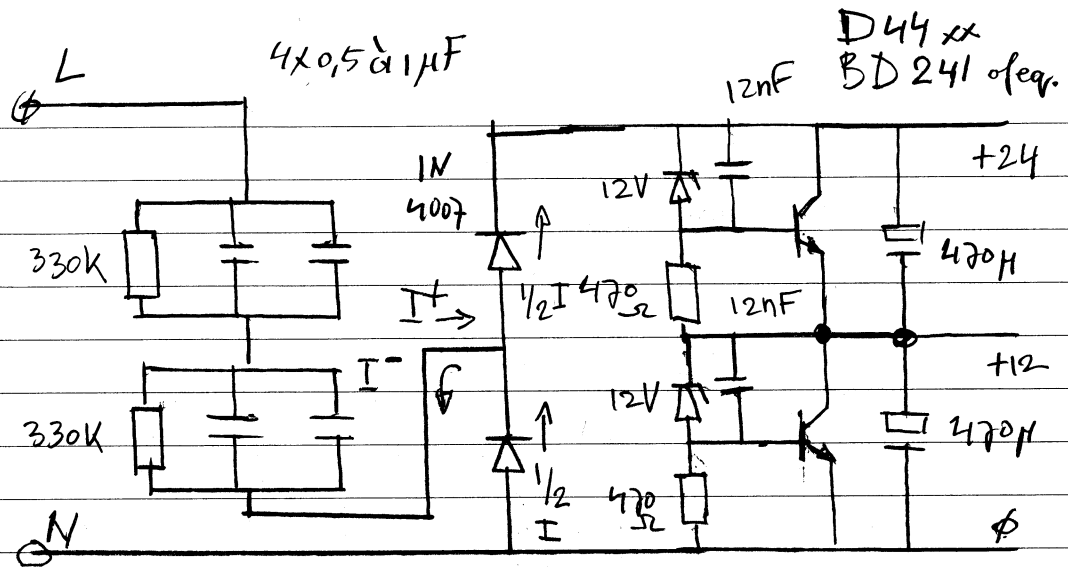 L
4x0,5 à 1 µF
D44 xx
BD 241 of eq.
12nF
+24
1N
4007
12V
330K
I+
1/2 I
470
Ω
12nF
470µ
I-
+12
12V
330K
470µ
1/2
I
470
Ω
N
ø